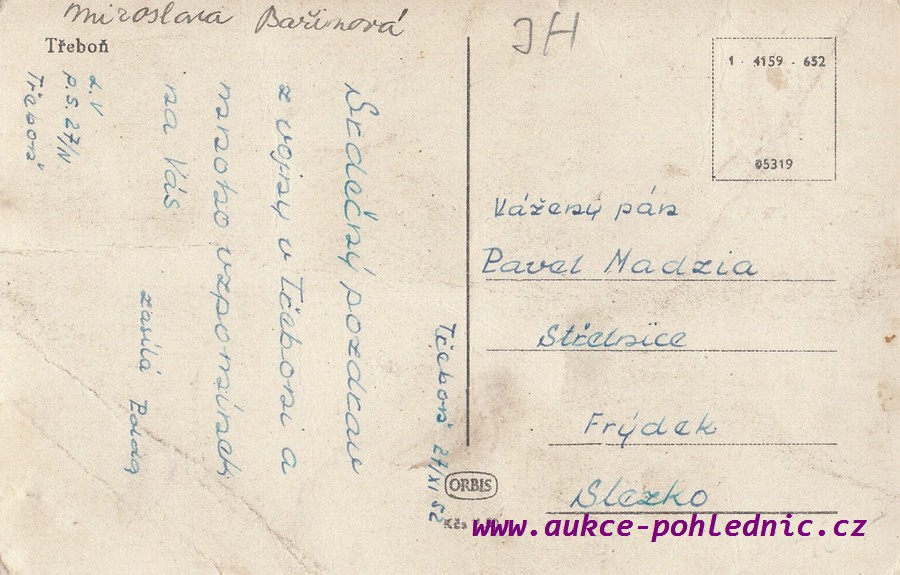 Miroslava Bařinová
Třeboň
Srdečný pozdrav
z vojny v Třeboni a
mnoho vzpomínek
na Vás
zasílá
L.V
P.S. 27/N
Třeboň
Třeboň 27/XI 52
JH
1 - 4159 - 652
05319
Vážený pán
Pavel Madzia
Střelnice
Frýdek
Slezko
ORBIS
Kčs
www.aukce-pohlednic.cz